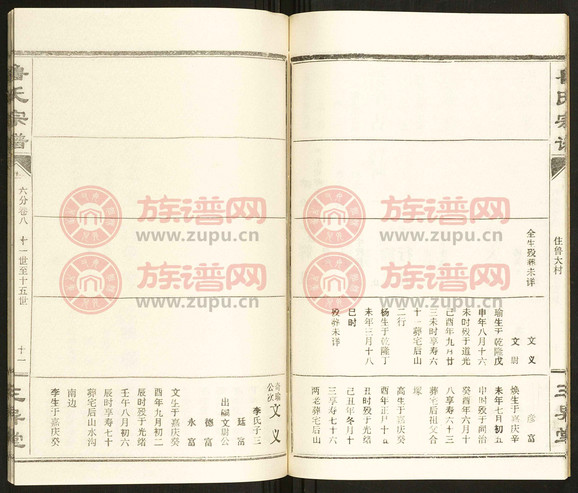 鲁氏宗谱
住鲁大村
三畏堂
全生殁葬未详
文义
文尉
瑜生于乾隆戊
申年八月十六
未时殁于道光
己酉年九月廿
三未时享寿六
十二葬宅后山
二行
杨生于乾隆丁
未年三月十八
巳时
殁葬未详
彦富
焕生于嘉庆辛
未年七月初五
申时殁于同治
癸酉年六月十
八享寿六十三
葬宅后祖父合
塚
高生于嘉庆癸
酉年正月十五
丑时殁于光绪
己丑年冬月十
三享寿七十六
两老葬宅后山
鲁氏宗谱
六分卷八
十一世至十五世
十一
三畏堂
公次
文义
李氏子三
廷富
出继文尉公
德富
永富
文生于嘉庆癸
酉年九月初二
辰时殁于光绪
壬午年八月初六
辰时享寿七十
葬宅后山水沟
南边
李生于嘉庆癸
族谱网
www.zupu.cn
族谱网
www.zupu.cn
族谱网
www.zupu.cn
族谱网
www.zupu.cn